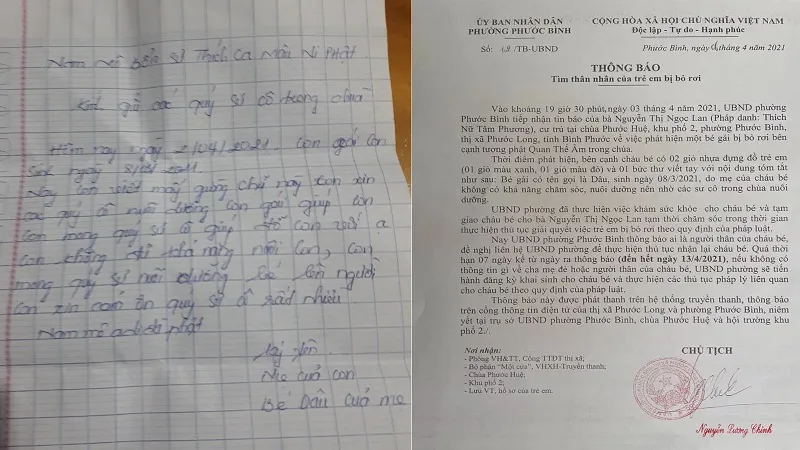 Nam mô Bổn sư Thích Ca Mâu Ni Phật
Kính gửi các quý sư cô trong chùa
Hôm nay ngày 2/04/2021. con gái con
Sinh ngày 8/03/2021.
Nay con viết mấy dòng chữ này con xin
các quý cô nuôi dưỡng con gái giúp con
con mong quý sư cô giúp đỡ con với ạ
con không đủ khả năng nuôi con, con
mong quý sư nuôi dưỡng bé lên người
con xin cảm ơn quý sư cô rất nhiều
Nam mô adi đà phật
ký tên
Mẹ của con
Bé Dâu của mẹ
ỦY BAN NHÂN DÂN
PHƯỜNG PHƯỚC BÌNH
Số: /TB-UBND
CỘNG HÒA XÃ HỘI CHỦ NGHĨA VIỆT NAM
Độc lập - Tự do - Hạnh phúc
Phước Bình, ngày tháng 4 năm 2021
THÔNG BÁO
Tìm thân nhân của trẻ em bị bỏ rơi
Vào khoảng 19 giờ 30 phút, ngày 03 tháng 4 năm 2021, UBND phường
Phước Bình tiếp nhận tin báo của bà Nguyễn Thị Ngọc Lan (Pháp danh: Thích
Nữ Tâm Phương), cư trú tại chùa Phước Huệ, khu phố 2, phường Phước Bình,
thị xã Phước Long, tỉnh Bình Phước về việc phát hiện một bé gái bị bỏ rơi bên
cạnh tượng phật Quan Thế Âm trong chùa.
Thời điểm phát hiện, bên cạnh cháu bé có 02 giỏ nhựa đựng đồ trẻ em
(01 giỏ màu xanh, 01 giỏ màu đỏ) và 01 bức thư viết tay với nội dung tóm tắt
như sau: Bé gái có tên gọi là Dâu, sinh ngày 08/3/2021, do mẹ của cháu bé
không có khả năng chăm sóc, nuôi dưỡng nên nhờ các sư cô trong chùa nuôi
dưỡng.
UBND phường đã thực hiện việc khám sức khỏe cho cháu bé và tạm
giao cháu bé cho bà Nguyễn Thị Ngọc Lan tạm thời chăm sóc trong thời gian
thực hiện thủ tục giải quyết việc trẻ em bị bỏ rơi theo quy định của pháp luật.
Nay UBND phường Phước Bình thông báo ai là người thân của cháu bé,
đề nghị liên hệ UBND phường để thực hiện thủ tục nhận lại cháu bé. Quá thời
hạn 07 ngày kể từ ngày ra thông báo (đến hết ngày 13/4/2021), nếu không có
thông tin gì về cha mẹ đẻ hoặc người thân của cháu bé, UBND phường sẽ tiến
hành đăng ký khai sinh cho cháu bé và thực hiện các thủ tục pháp lý liên quan
cho cháu bé theo quy định của pháp luật.
Thông báo này được phát thanh trên hệ thống truyền thanh, thông báo
trên cổng thông tin điện tử của thị xã Phước Long và phường Phước Bình, niêm
yết tại trụ sở UBND phường Phước Bình, chùa Phước Huệ và hội trường khu
phố 2./.
Nơi nhận:
- Phòng VH&TT, Cổng TTĐT thị xã;
- Bộ phận "Một cửa", VHXH-Truyền thanh;
- Chùa Phước Huệ;
- Khu phố 2;
- Lưu VT, hồ sơ của trẻ em.
CHỦ TỊCH
Nguyễn Dương Chinh